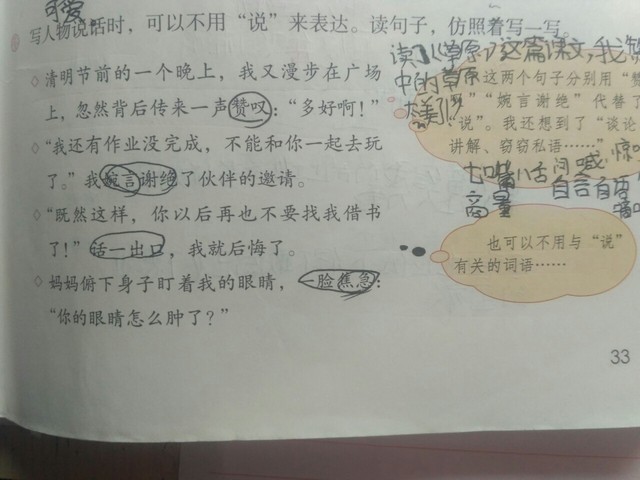 可爱
写人物说话时，可以不用“说”来表达。读句子，仿照着写一写。
读《草原》这篇课文，我
中的草原
太美了！
◇清明节前的一个晚上，我又漫步在广场
上，忽然背后传来一声赞叹：“多好啊！”
◇“我还有作业没完成，不能和你一起去玩
了。”我婉言谢绝了伙伴的邀请。
◇“既然这样，你以后再也不要找我借书
了！”话一出口，我就后悔了。
◇妈妈俯下身子盯着我的眼睛，一脸焦急：
“你的眼睛怎么肿了？”
这两个句子分别用“赞
”“婉言谢绝”代替了
说”。我还想到了“谈论
讲解、窃窃私语……”
七嘴八舌 问 喊 惊
商量 自言自语
也可以不用与“说”
有关的词语……
33